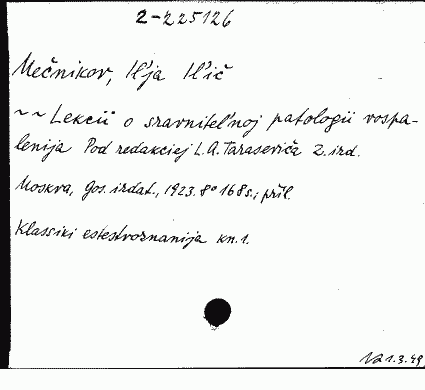 2-225126
Mečnikov, Il'ja Il'ič
~ ~ Lekcii o sravnitel'noj patologii vospa-
lenija Pod redakciej L.A. Taraseviča 2. izd.
Moskva, Gos. izdat., 1923. 8° 168 s.; příl.
Klassiki estestvoznanija kn. 1.
1.3.49